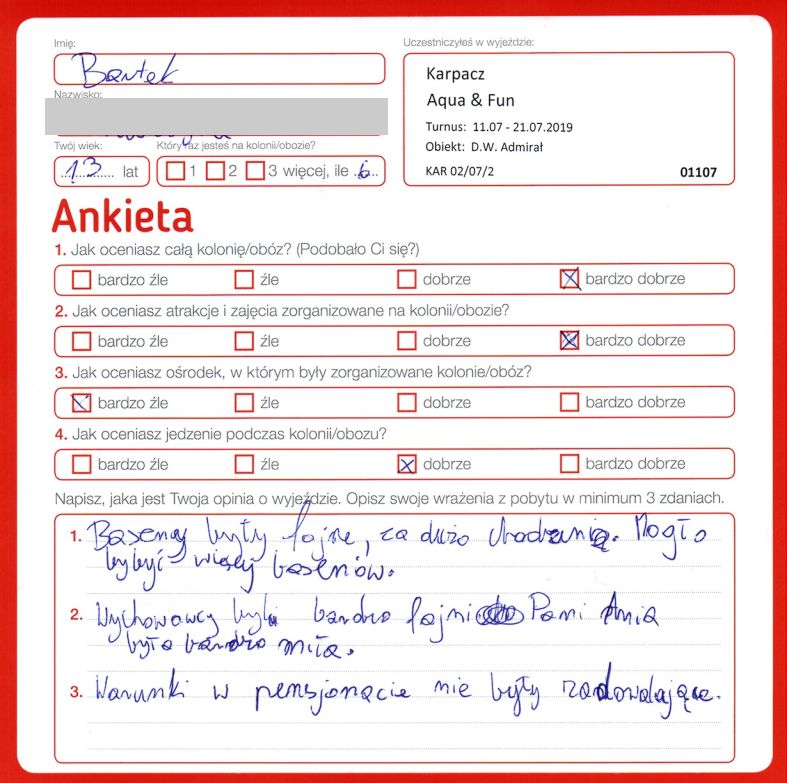 Imię:
Bartek
Uczestniczyłeś w wyjeździe:
Karpacz
Aqua & Fun
Turnus: 11.07 - 21.07.2019
Obiekt: D.W. Admirał
KAR 02/07/2 01107
Nazwisko:
Twój wiek:
13 lat
Który raz jesteś na kolonii/obozie?
1 2 3 więcej, ile 6
Ankieta
1. Jak oceniasz całą kolonię/obóz? (Podobało Ci się?)
bardzo źle źle dobrze bardzo dobrze
2. Jak oceniasz atrakcje i zajęcia zorganizowane na kolonii/obozie?
bardzo źle źle dobrze bardzo dobrze
3. Jak oceniasz ośrodek, w którym były zorganizowane kolonie/obóz?
bardzo źle źle dobrze bardzo dobrze
4. Jak oceniasz jedzenie podczas kolonii/obozu?
bardzo źle źle dobrze bardzo dobrze
Napisz, jaka jest Twoja opinia o wyjeździe. Opisz swoje wrażenia z pobytu w minimum 3 zdaniach.
1. Baseny były fajne, za dużo chodzenia. Mogło
być więcej basenów.
2. Wychowawcy byli bardzo fajni Pani Ania
była bardzo miła.
3. Warunki w pensjonacie nie były zadowalające.